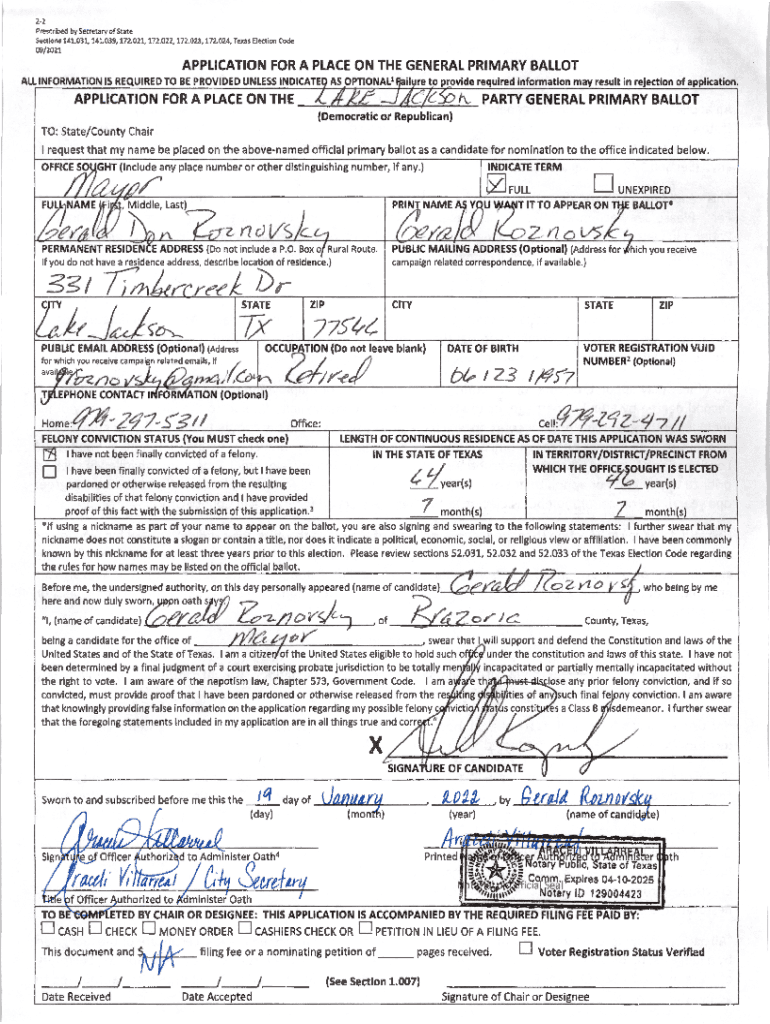 2-2
Prescribed by Secretary of State
Sections 141.031, 141.039, 172.021, 172.022, 172.023, 172.024, Texas Election Code
09/2021
APPLICATION FOR A PLACE ON THE GENERAL PRIMARY BALLOT
ALL INFORMATION IS REQUIRED TO BE PROVIDED UNLESS INDICATED AS OPTIONAL¹ Failure to provide required information may result in rejection of application.
APPLICATION FOR A PLACE ON THE LAKE JACKSON PARTY GENERAL PRIMARY BALLOT
(Democratic or Republican)
TO: State/County Chair
I request that my name be placed on the above-named official primary ballot as a candidate for nomination to the office indicated below.
OFFICE SOUGHT (Include any place number or other distinguishing number, if any.) INDICATE TERM
Mayor FULL UNEXPIRED
FULL NAME (First, Middle, Last) PRINT NAME AS YOU WANT IT TO APPEAR ON THE BALLOT*
Gerald Dan Roznovsky Gerald Roznovsky
PERMANENT RESIDENCE ADDRESS (Do not include a P.O. Box or Rural Route. PUBLIC MAILING ADDRESS (Optional) (Address for which you receive
If you do not have a residence address, describe location of residence.) campaign related correspondence, if available.)
331 Timbercreek Dr
CITY STATE ZIP CITY STATE ZIP
Lake Jackson TX 77566
PUBLIC EMAIL ADDRESS (Optional) (Address OCCUPATION (Do not leave blank) DATE OF BIRTH VOTER REGISTRATION VUID
for which you receive campaign related emails, if NUMBER² (Optional)
available.) groznovsky@gmail.com Retired 06/23/1957
TELEPHONE CONTACT INFORMATION (Optional)
Home: 979-297-5311 Office: Cell: 979-292-4711
FELONY CONVICTION STATUS (You MUST check one) LENGTH OF CONTINUOUS RESIDENCE AS OF DATE THIS APPLICATION WAS SWORN
I have not been finally convicted of a felony. IN THE STATE OF TEXAS IN TERRITORY/DISTRICT/PRECINCT FROM
I have been finally convicted of a felony, but I have been WHICH THE OFFICE SOUGHT IS ELECTED
pardoned or otherwise released from the resulting 64 year(s) 46 year(s)
disabilities of that felony conviction and I have provided
proof of this fact with the submission of this application.³ 7 month(s) 7 month(s)
*If using a nickname as part of your name to appear on the ballot, you are also signing and swearing to the following statements: I further swear that my
nickname does not constitute a slogan or contain a title, nor does it indicate a political, economic, social, or religious view or affiliation. I have been commonly
known by this nickname for at least three years prior to this election. Please review sections 52.031, 52.032 and 52.033 of the Texas Election Code regarding
the rules for how names may be listed on the official ballot.
Before me, the undersigned authority, on this day personally appeared (name of candidate) Gerald Roznovsky, who being by me
here and now duly sworn, upon oath says:
"I, (name of candidate) Gerald Roznovsky, of Brazoria County, Texas,
being a candidate for the office of Mayor, swear that I will support and defend the Constitution and laws of the
United States and of the State of Texas. I am a citizen of the United States eligible to hold such office under the constitution and laws of this state. I have not
been determined by a final judgment of a court exercising probate jurisdiction to be totally mentally incapacitated or partially mentally incapacitated without
the right to vote. I am aware of the nepotism law, Chapter 573, Government Code. I am aware that I must disclose any prior felony conviction, and if so
convicted, must provide proof that I have been pardoned or otherwise released from the resulting disabilities of any such final felony conviction. I am aware
that knowingly providing false information on the application regarding my possible felony conviction status constitutes a Class B misdemeanor. I further swear
that the foregoing statements included in my application are in all things true and correct."
X
SIGNATURE OF CANDIDATE
Sworn to and subscribed before me this the 19 day of January, 2022, by Gerald Roznovsky.
(day) (month) (year) (name of candidate)
Araceli Villarreal Araceli Villarreal
Signature of Officer Authorized to Administer Oath⁴ Printed Name of Officer Authorized to Administer Oath
ARACELI VILLARREAL
Notary Public, State of Texas
Comm. Expires 04-10-2025
Notary ID 129004423
Araceli Villarreal / City Secretary
Title of Officer Authorized to Administer Oath
TO BE COMPLETED BY CHAIR OR DESIGNEE: THIS APPLICATION IS ACCOMPANIED BY THE REQUIRED FILING FEE PAID BY:
CASH CHECK MONEY ORDER CASHIERS CHECK OR PETITION IN LIEU OF A FILING FEE.
This document and $ N/A filing fee or a nominating petition of pages received. Voter Registration Status Verified
/ / / / (See Section 1.007)
Date Received Date Accepted Signature of Chair or Designee